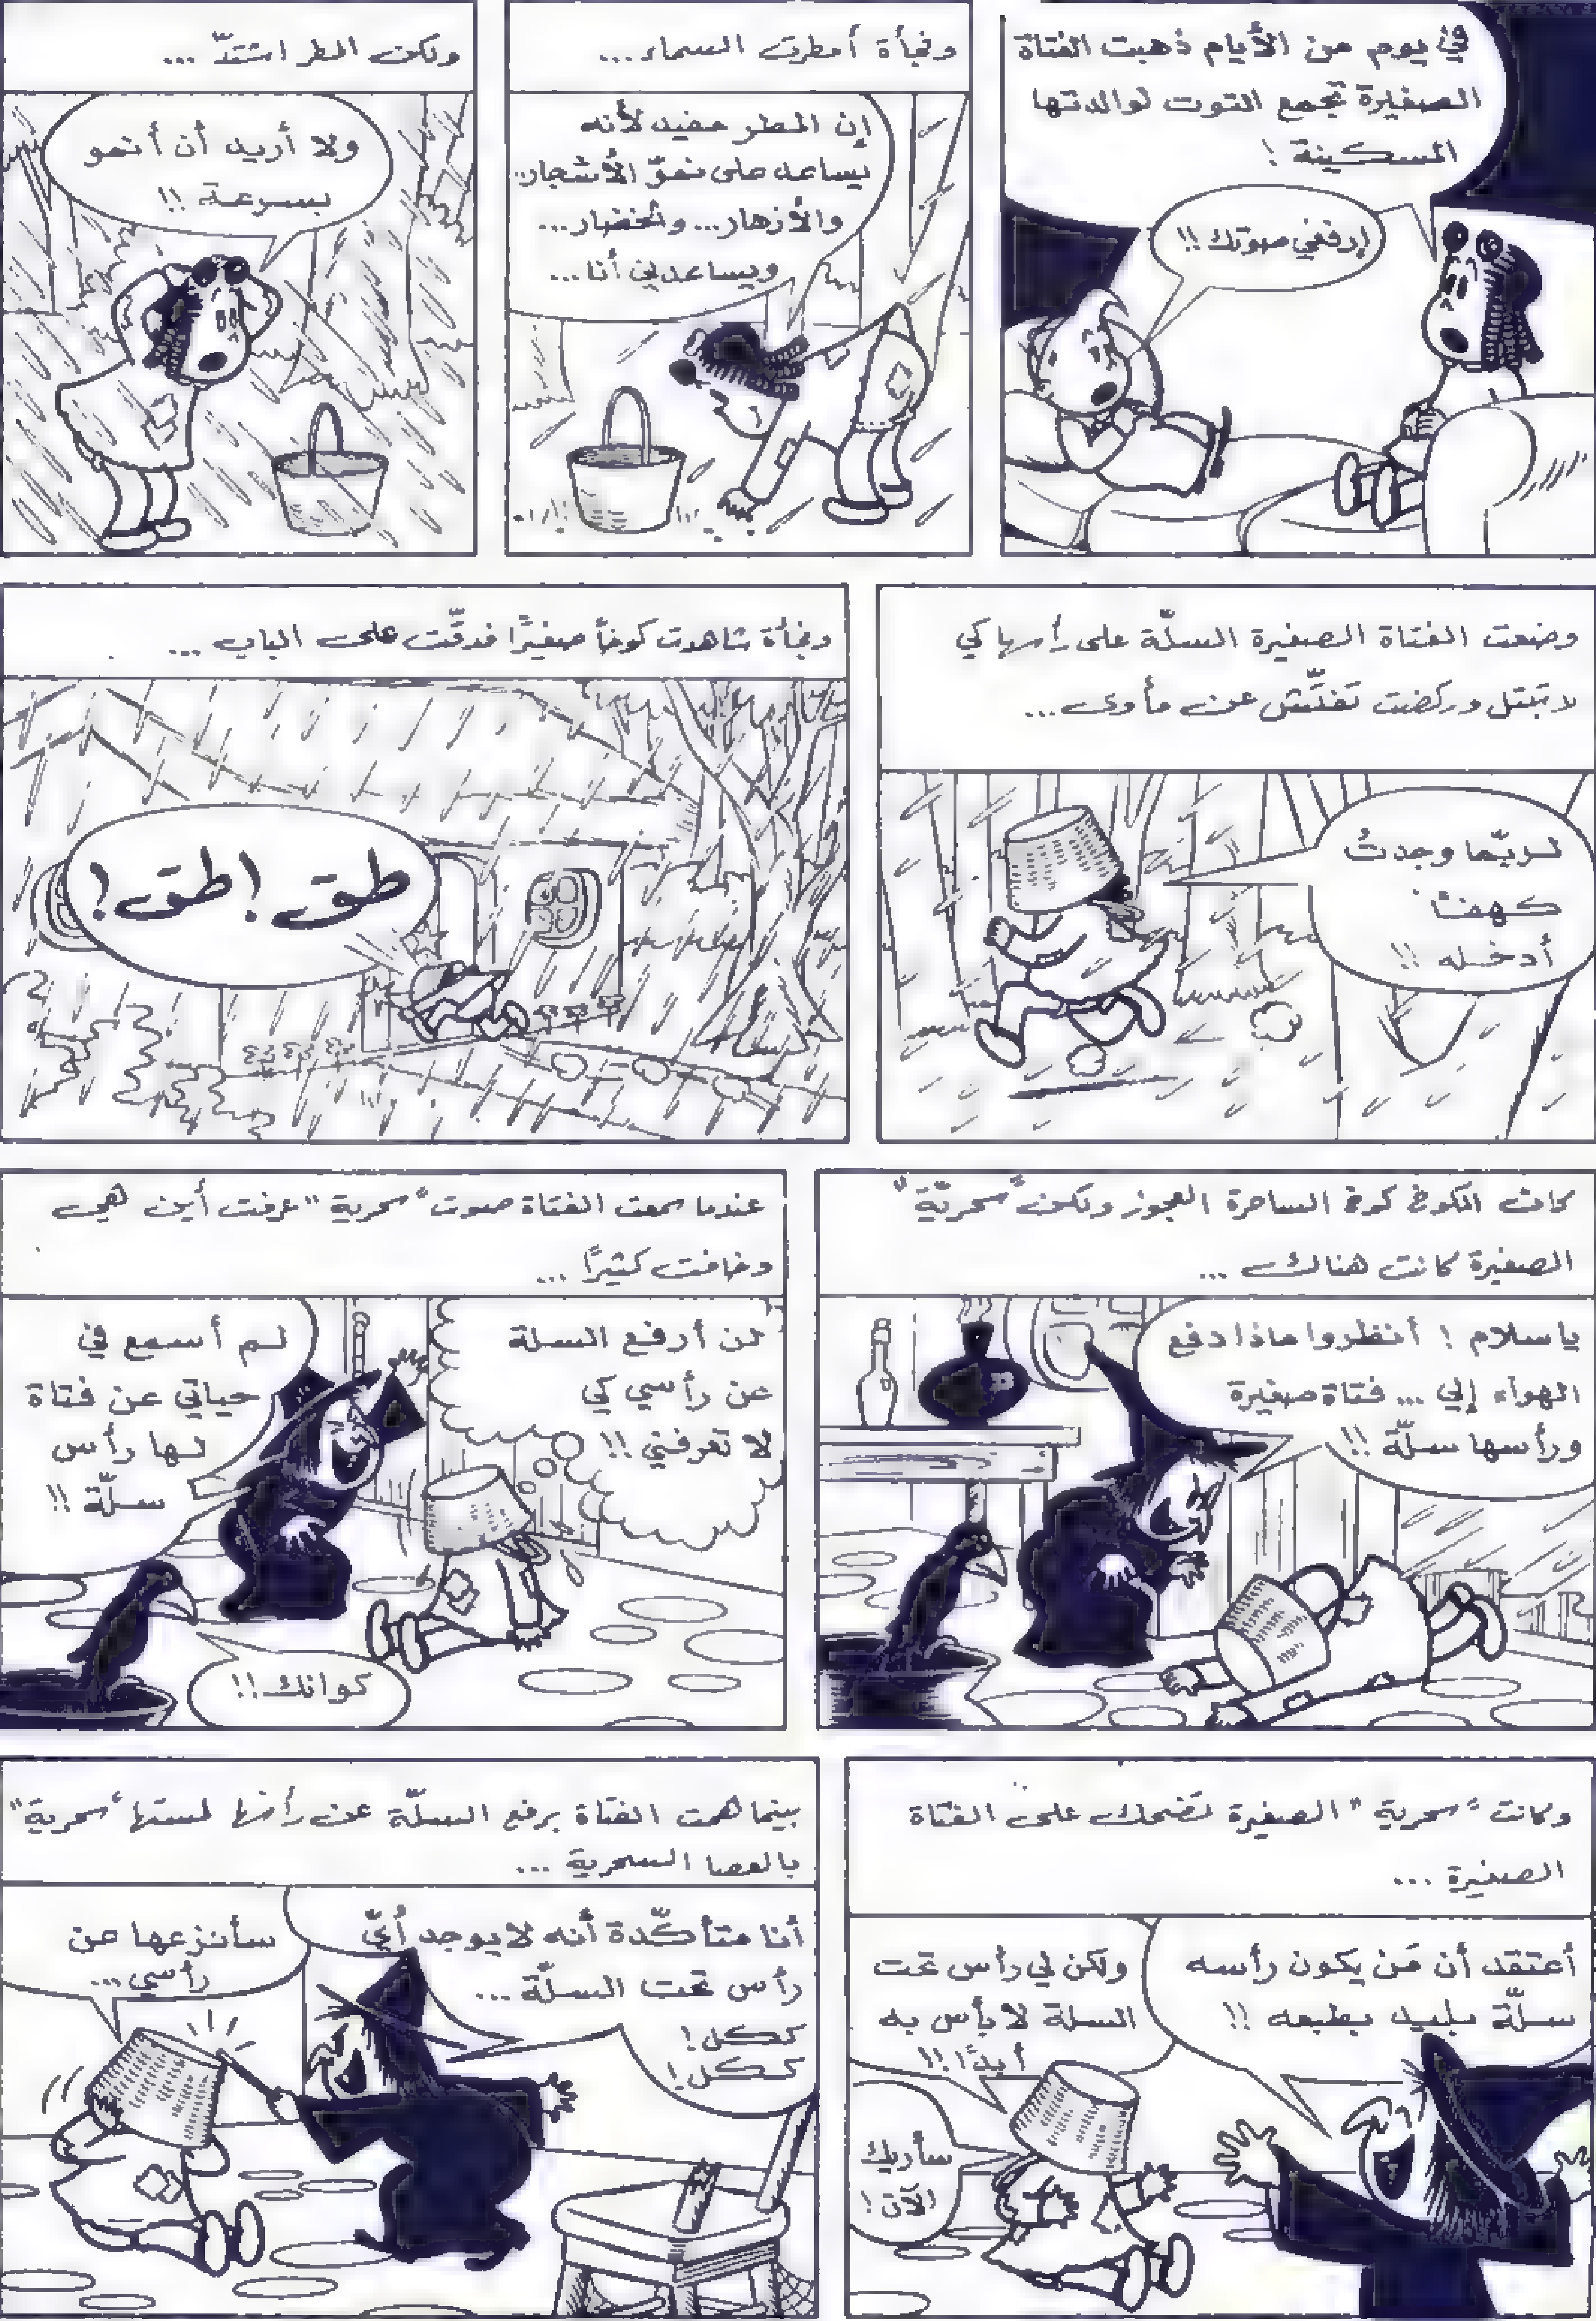 في يوم من الأيام ذهبت الفتاة
الصغيرة تجمع التوت لوالدتها
المسكينة !
إرفعي صوتك !!
وفجأة أمطرت السماء...
إن المطر مفيد لأنه
يساعد على نموّ الأشجار..
والأزهار... والخضار...
ويساعدني أنا...
ولكن المطر اشتدّ ...
ولا أريد أن أنمو
بسرعة !!
وضعت الفتاة الصغيرة السلّة على رأسها كي
لا تبتل وركضت تفتّش عن مأوى...
لربّما وجدتُ
كهفًا
أدخله !!
وفجأة شاهدت كوخاً صغيرًا فدقّت على الباب ...
طق ! طق !
كان الكوخ كوخ الساحرة العجوز ولكن "سحريّة"
الصغيرة كانت هناك ...
يا سلام ! أنظروا ماذا دفع
الهواء إلي ... فتاة صغيرة
ورأسها سلّة !!
عندما سمعت الفتاة صوت "سحرية" عرفت أين هي
وخافت كثيرًا ...
لن أرفع السلة
عن رأسي كي
لا تعرفني !!
لم أسمع في
حياتي عن فتاة
لها رأس
سلّة !!
كوانك !!
وكانت "سحرية" الصغيرة تضحك على الفتاة
الصغيرة ...
أعتقد أن مَن يكون رأسه
سلّة بليد بطبعه !!
ولكن لي رأس تحت
السلة لا بأس به
أبدًا !!
سأريك
الآن !
بينما همت الفتاة برفع السلّة عن رأسها لمستها "سحرية"
بالعصا السحرية ...
أنا متأكّدة أنه لا يوجد أيّ
رأس تحت السلّة ...
ككل !
ككل !
سأنزعها عن
رأسي ...